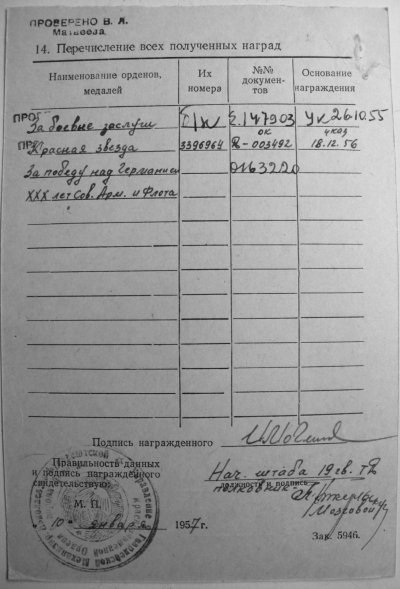 ПРОВЕРЕНО В. Я.
Матвеева.
14. Перечисление всех полученных наград
Наименование орденов, медалей
Их номера
№№ документов
Основание награждения
За боевые заслуги Б/н Е.147903 Ук 26.10.55
Красная звезда 3396964 003492 указ 18.12.56
За победу над Германией 0163220
XXX лет Сов. Арм. и Флота
Подпись награжденного
Правильность данных
и подпись награжденного
свидетельствую:
Нач. штаба 19 гв.
полковник
должность и подпись
М. П.
10 января 1957 г.
Зак. 5946.